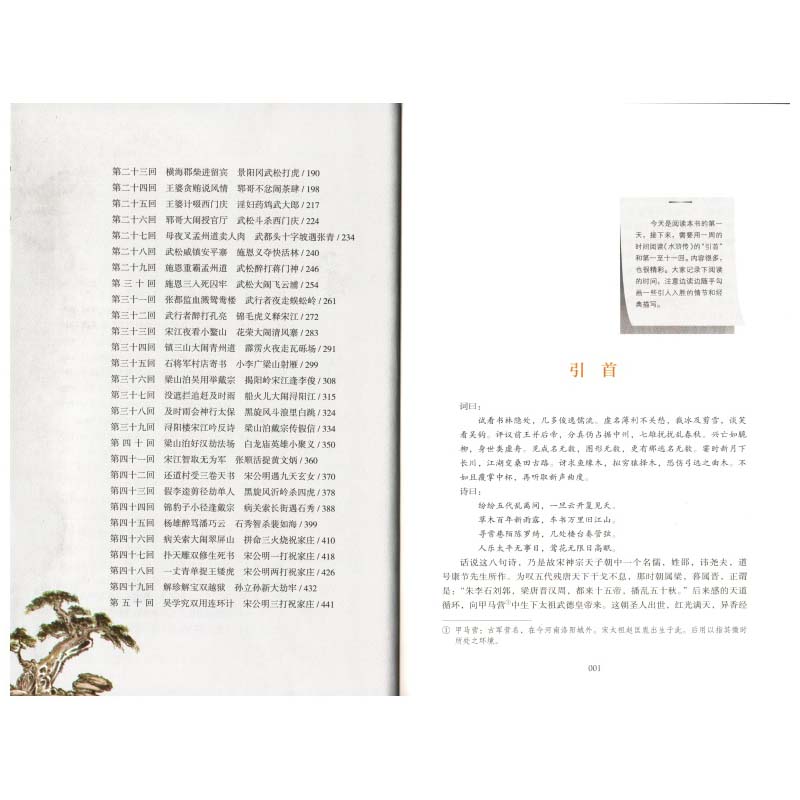 第二十三回 横海郡柴进留宾 景阳冈武松打虎 / 190
第二十四回 王婆贪贿说风情 郓哥不忿闹茶肆 / 198
第二十五回 王婆计啜西门庆 淫妇药鸩武大郎 / 217
第二十六回 郓哥大闹授官厅 武松斗杀西门庆 / 224
第二十七回 母夜叉孟州道卖人肉 武都头十字坡遇张青 / 234
第二十八回 武松威镇安平寨 施恩义夺快活林 / 240
第二十九回 施恩重霸孟州道 武松醉打蒋门神 / 246
第三十回 施恩三入死囚牢 武松大闹飞云浦 / 254
第三十一回 张都监血溅鸳鸯楼 武行者夜走蜈蚣岭 / 261
第三十二回 武行者醉打孔亮 锦毛虎义释宋江 / 272
第三十三回 宋江夜看小鳌山 花荣大闹清风寨 / 283
第三十四回 镇三山大闹青州道 霹雳火夜走瓦砾场 / 291
第三十五回 石将军村店寄书 小李广梁山射雁 / 299
第三十六回 梁山泊吴用举戴宗 揭阳岭宋江逢李俊 / 308
第三十七回 没遮拦追赶及时雨 船火儿大闹浔阳江 / 315
第三十八回 及时雨会神行太保 黑旋风斗浪里白跳 / 324
第三十九回 浔阳楼宋江吟反诗 梁山泊戴宗传假信 / 334
第四十回 梁山泊好汉劫法场 白龙庙英雄小聚义 / 350
第四十一回 宋江智取无为军 张顺活捉黄文炳 / 360
第四十二回 还道村受三卷天书 宋公明遇九天玄女 / 370
第四十三回 假李逵剪径劫单人 黑旋风沂岭杀四虎 / 378
第四十四回 锦豹子小径逢戴宗 病关索长街遇石秀 / 388
第四十五回 杨雄醉骂潘巧云 石秀智杀裴如海 / 399
第四十六回 病关索大闹翠屏山 拼命三火烧祝家庄 / 410
第四十七回 扑天雕双修生死书 宋公明一打祝家庄 / 418
第四十八回 一丈青单捉王矮虎 宋公明两打祝家庄 / 426
第四十九回 解珍解宝双越狱 孙立孙新大劫牢 / 432
第五十回 吴学究双用连环计 宋公明三打祝家庄 / 441
今天是阅读本书的第一
天，接下来，需要用一周的
时间阅读《水浒传》的“引首”
和第一至十一回。内容很多，
也很精彩。大家记录下阅读
的时间。注意边读边随手勾
画一些引人入胜的情节和经
典描写。
引首
词曰：
试看书林隐处，几多俊逸儒流。虚名薄利不关愁，裁冰及剪雪，谈笑
看吴钩。评议前王并后帝，分真伪占据中州，七雄扰扰乱春秋。兴亡如脆
柳，身世类虚舟。见成名无数，图形无数，更有那逃名无数。霎时新月下
长川，江湖变桑田古路。讶求鱼缘木，拟穷猿择木，恐伤弓远之曲木。不
如且覆掌中杯，再听取新声曲度。
诗曰：
纷纷五代乱离间，一旦云开复见天。
草木百年新雨露，车书万里旧江山。
寻常巷陌陈罗绮，几处楼台奏管弦。
人乐太平无事日，莺花无限日高眠。
话说这八句诗，乃是故宋神宗天子朝中一个名儒，姓邵，讳尧夫，道
号康节先生所作。为叹五代残唐天下干戈不息，那时朝属梁，暮属晋，正谓
是：“朱李石刘郭，梁唐晋汉周，都来十五帝，播乱五十秋。”后来感的天道
循环，向甲马营①中生下太祖武德皇帝来。这朝圣人出世，红光满天，异香经
① 甲马营：古军营名，在今河南洛阳城外。宋太祖赵匡胤出生于此。后用以指其微时
所处之环境。
001